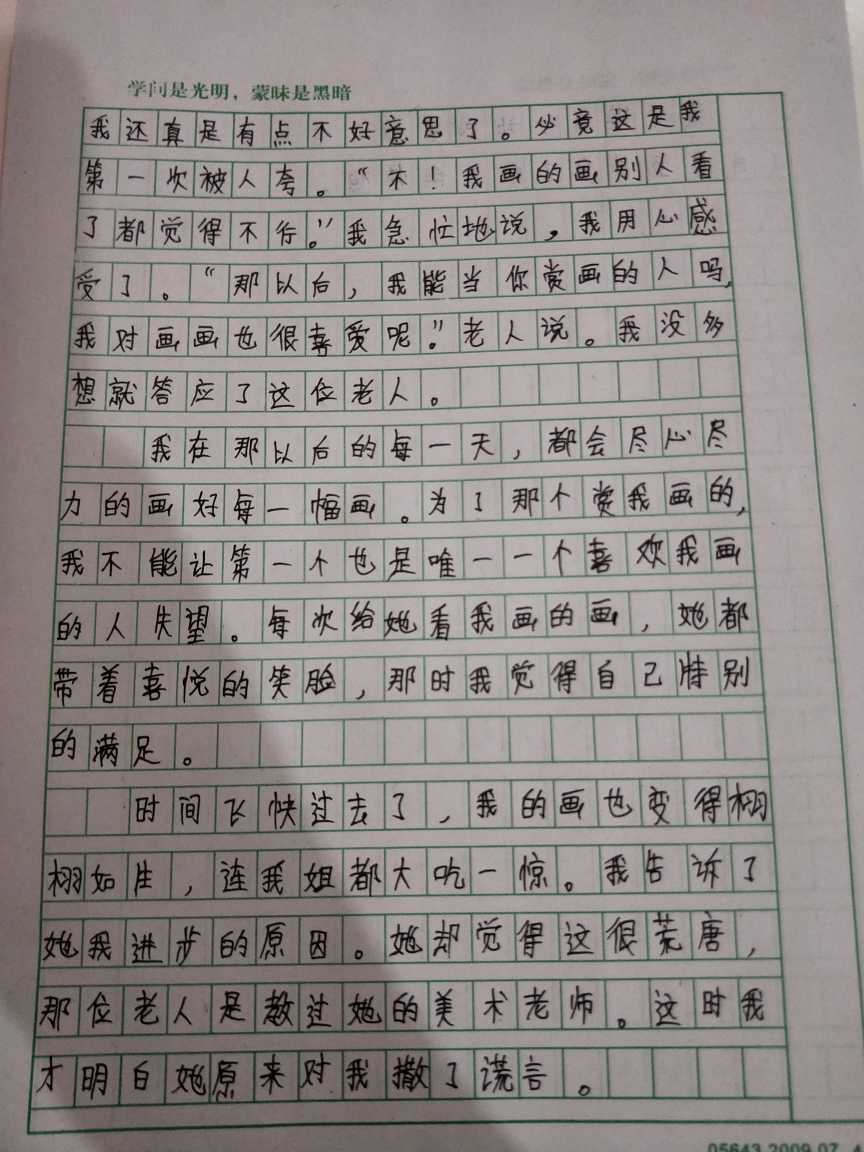 学问是光明，蒙昧是黑暗
我还真是有点不好意思了。必竟这是我
第一次被人夸。“不！我画的画别人看
了都觉得不行。”我急忙地说，我用心感
受了。“那以后，我能当你赏画的人吗，
我对画画也很喜爱呢。”老人说。我没多
想就答应了这位老人。
我在那以后的每一天，都会尽心尽
力的画好每一幅画。为了那个赏我画的，
我不能让第一个也是唯一一个喜欢我画
的人失望。每次给她看我画的画，她都
带着喜悦的笑脸，那时我觉得自己特别
的满足。
时间飞快过去了，我的画也变得栩
栩如生，连我姐都大吃一惊。我告诉了
她我进步的原因。她却觉得这很荒唐，
那位老人是教过她的美术老师。这时我
才明白她原来对我撒了谎言。
05643 2009.07